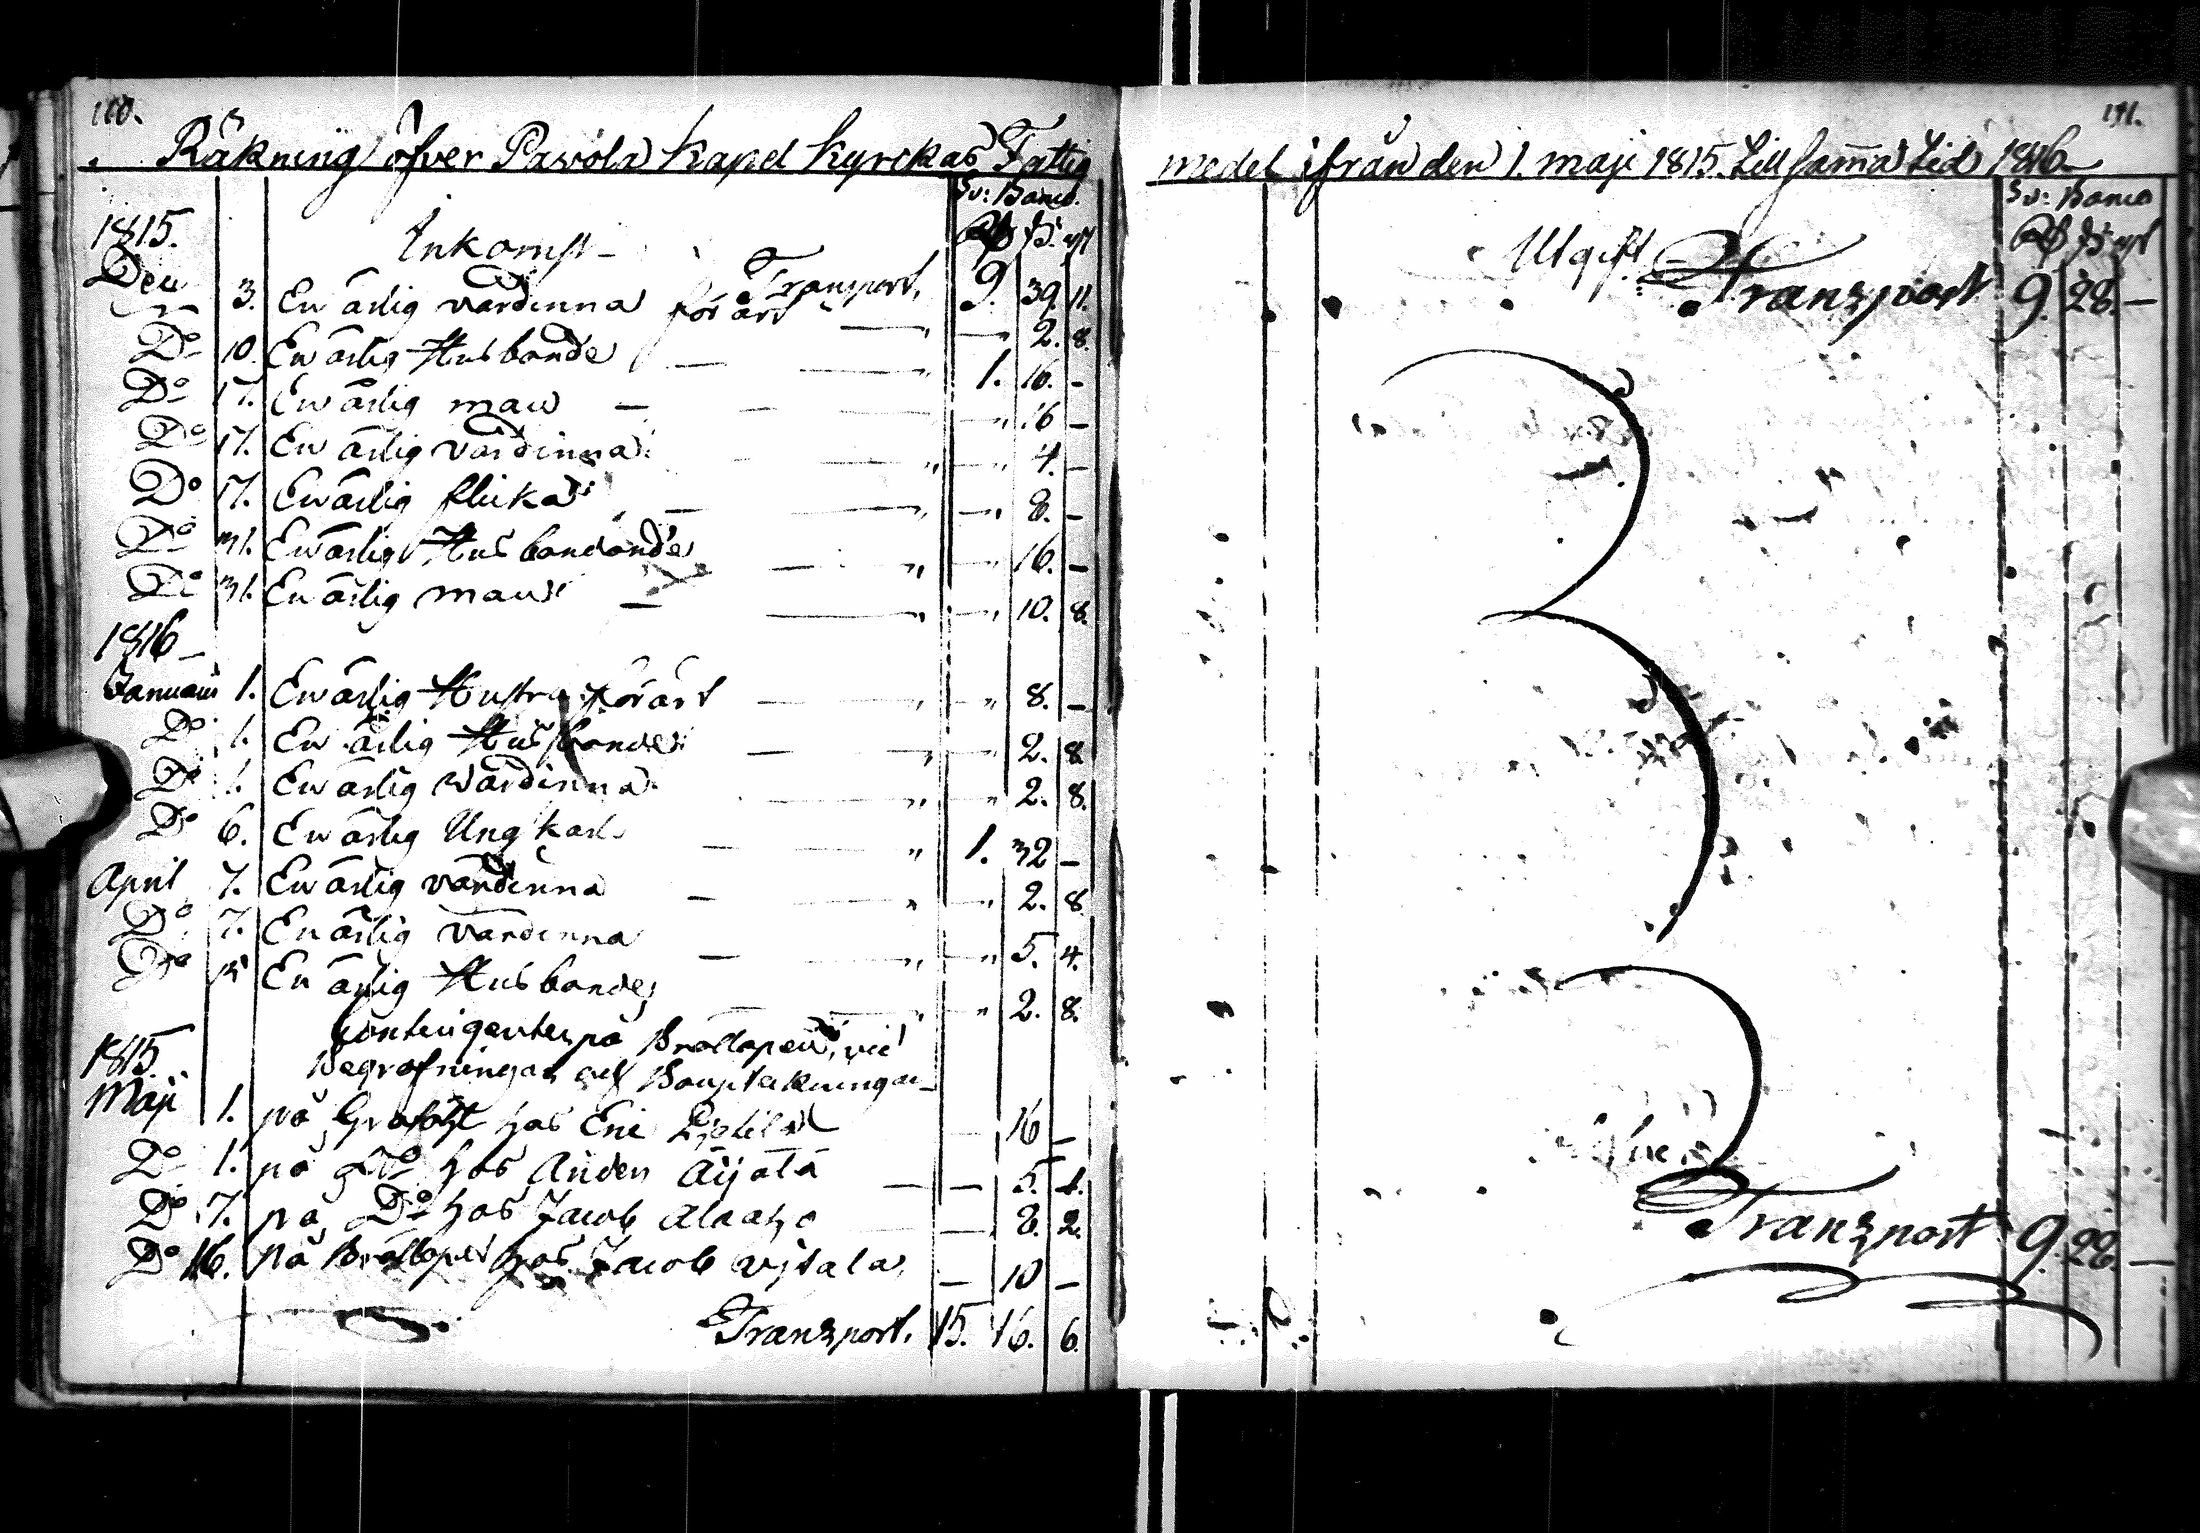 110.
Räkning öfver Pavola Kapel Kyrckas Fattig
Sv: Banco.
Rd ß. rst
1815. Inkomst
Transport, 9. 39. 11.
Decr 3. En ärlig värdinna förärt — 2. 8.
Do 10. En ärlig Husbonde — 1. 16. —
Do 17. En ärlig man — 16 —
Do 17. En ärlig värdinna — 4. —
Do 17. En ärlig flicka — 8. —
Do 31. En ärlig Husbondande — 16. —
Do 31. En ärlig man — 10. 8.
1816
Januarii 1. En ärlig Hustru förärt — 8. —
Do 1. En ärlig Husbonde — 2. 8
Do 1. En ärlig värdinna — 2. 8.
Do 6. En ärlig Ungkarl 1. 32 —
April 7. En ärlig värdinna — 2. 8
Do 7. En ärlig värdinna — 5. 4.
Do En ärlig Husbonde — 2. 8.
Contingenter på Bröllopen, vid
1815. Begrafningar och Bouptekningar
Maji 1. på Graföhl hos Eric — 16 —
Do 1. på Do hos Anders Äijälä — 5. 4.
Do 7. på Do hos Jacob Alaaho — 8. 2.
Do 16. på Bröllopet hos Jacob Vjtala — 10 —
Transport. 15. 16. 6.
111.
medel ifrån den 1. maji 1815. till samma tid 1816
Sv: Banco
Rd ß rst
Utgift
Transport 9. 28. —
Transport 9. 28. —